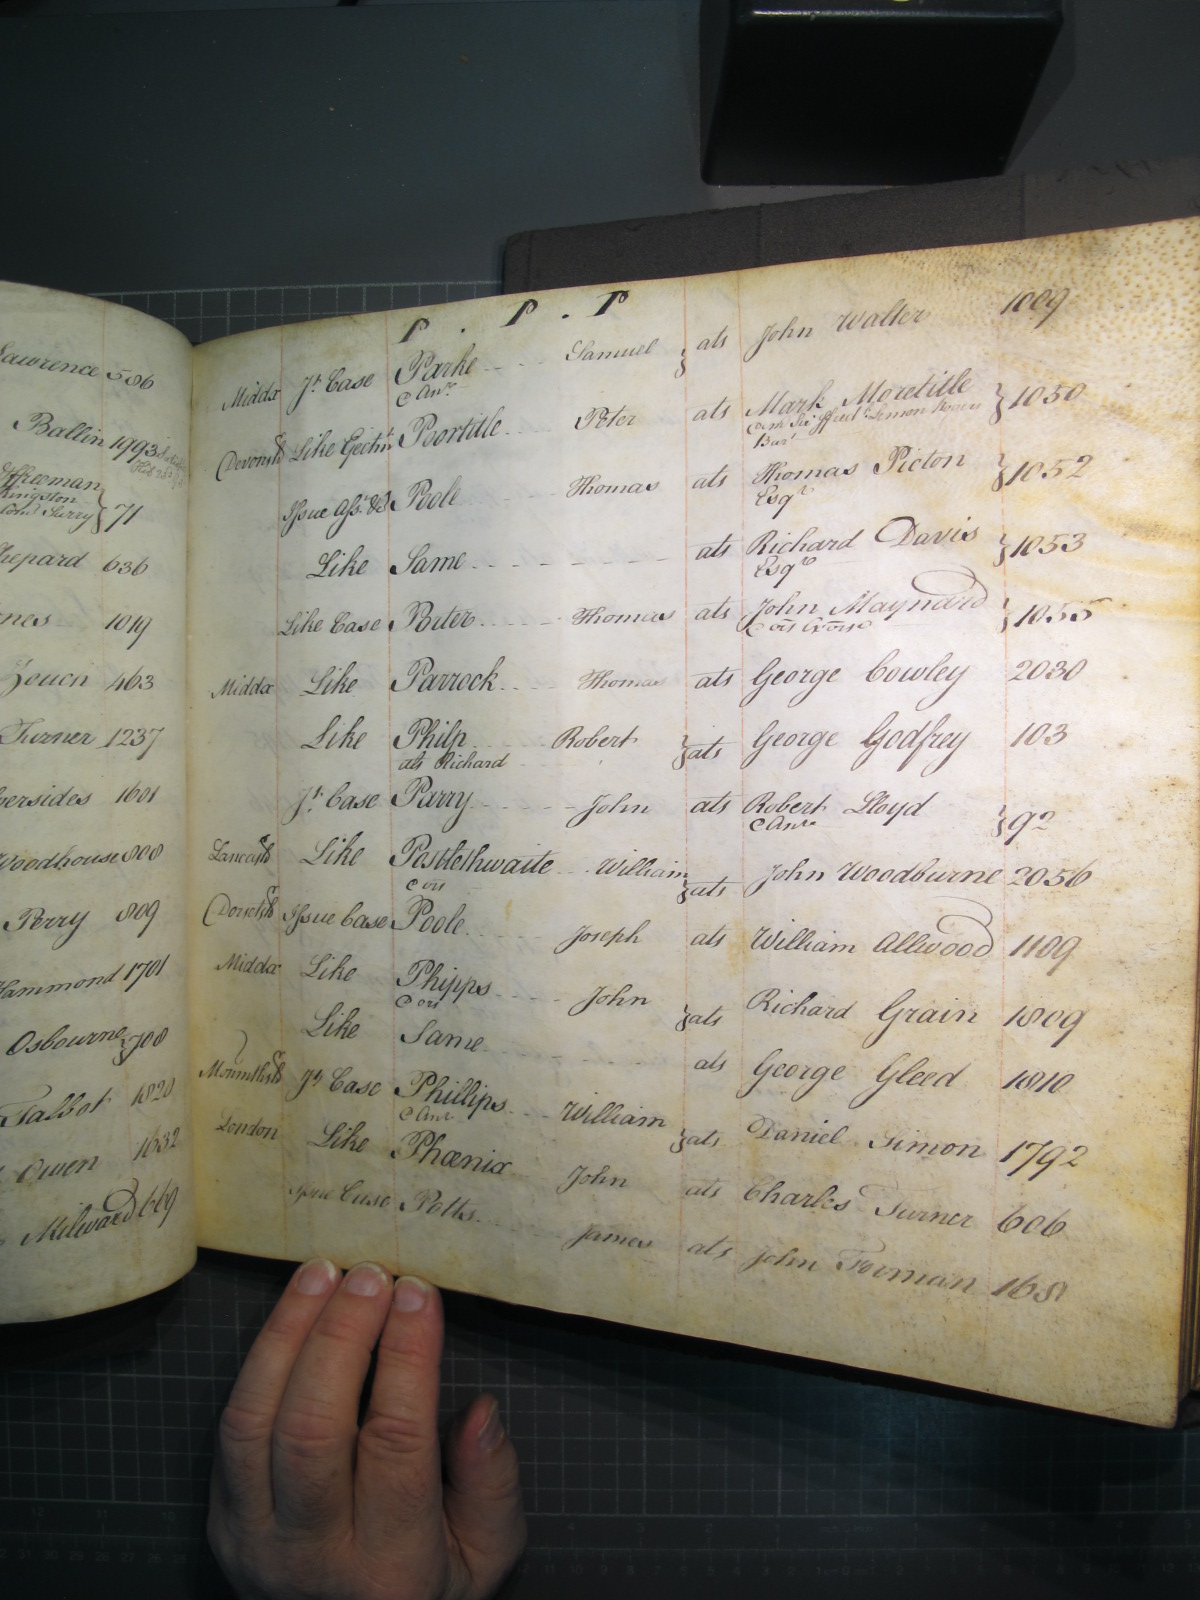 Lawrence 586
Ballin 1993
Freeman
Kingston
Com Surry } 71
hepard 636
nes 1019
Zouch 463
Turner 1237
persides 1601
Woodhouse 808
Perry 809
Hammond 1701
Osbourne } 708
Talbot 1820
Owen 1632
Milward 669
P . P . P
Middx Jt Case Parke Samuel } ats John Walter 1009
& Anr
Devonsh Like Eectmt Poortitle Peter ats Mark Moretitle } 1050
Bart
Issue Ass. &B Pole Thomas ats Thomas Picton } 1052
Esqr
Like Same ats Richard Davis } 1053
Esqr
Like Case Peter Thomas ats John Maynard } 1055
& ors
Middx Like Parrock Thomas ats George Cowley 2030
Like Philp Robert } ats George Godfrey 103
als Richard
Jt Case Parry John ats Robert Lloyd } 92
& Anr
Lancash Like Postlethwaite William } ats John Woodburne 2056
& ors
Dorsetsh Issue Case Poole Joseph ats William Allwood 1109
Middx Like Phipps John } ats Richard Grain 1809
& ors
Like Same ats George Gleed 1810
Monmthsh Jt Case Phillips William } ats Daniel Simon 1792
& Anr
London Like Phœnix John ats Charles Turner 606
Issue Case Potts James ats John Forman 168